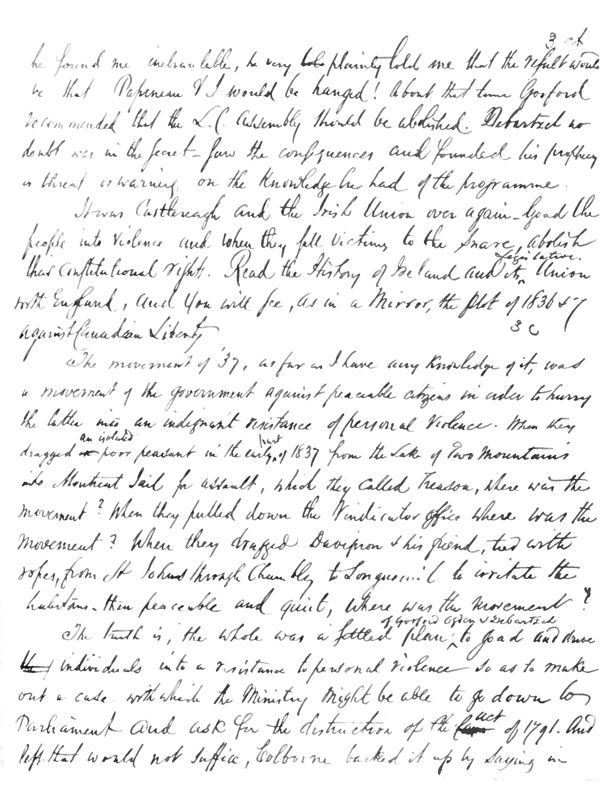 3 ct
he found me inebranlable, he very plainly told me that the result would
be that Papineau & I would be hanged! About that time Gosford
recommended that the L.C. Assembly should be abolished. Debartzch no
doubt was in the secret - saw the consequences and founded his prophecy
or threat or warning on the Knowledge he had of the programme.
It was Castlereagh and the Irish Union over again - Goad the
people into violence and when they fall victims to the snare, abolish
their constitutional right. Read the History of Ireland and its Legislative Union
with England, and you will see, as in a Mirror, the plot of 1836 & 7
against Canadian Liberty
3 c
The movement of '37, as far as I have any Knowledge of it, was
a movement of the government against peaceable citizens in order to hurry
the latter into an indignant resistance of personal violence. When they
dragged an isolated poor peasant in the early part of 1837 from the Lake of Two Mountains
into Montreal Jail for assault, which they called Treason, where was the
movement? When they pulled down the Vindicator office where was the
movement? When they dragged Davignon & his friend, tied with
ropes, from St Johns through Chambly to Longueuil to irritate the
habitans - then peaceable and quiet, where was the movement?
The truth is, the whole was a settled plan, of Gosford Ogden & Debartzch to goad and drive
individuals into a resistance to personal violence so as to make
out a case with which the Ministry might be able to go down to
Parliament and ask for the destruction of the act of 1791. And
lest that would not suffice, Colborne backed it up by saying in